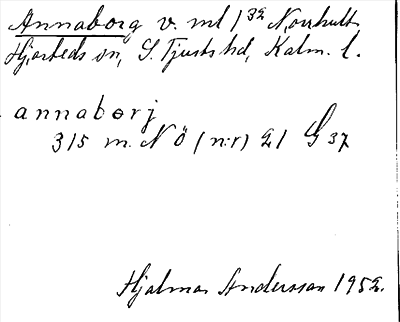 Annaborg v. mtl 1 32 Norrhult
Hjorteds sn, S. Tjusts hd, Kalm. l.
annaborj
315 m. NÖ (n:r) 21 G 37
Hjalmar Andersson 1952.